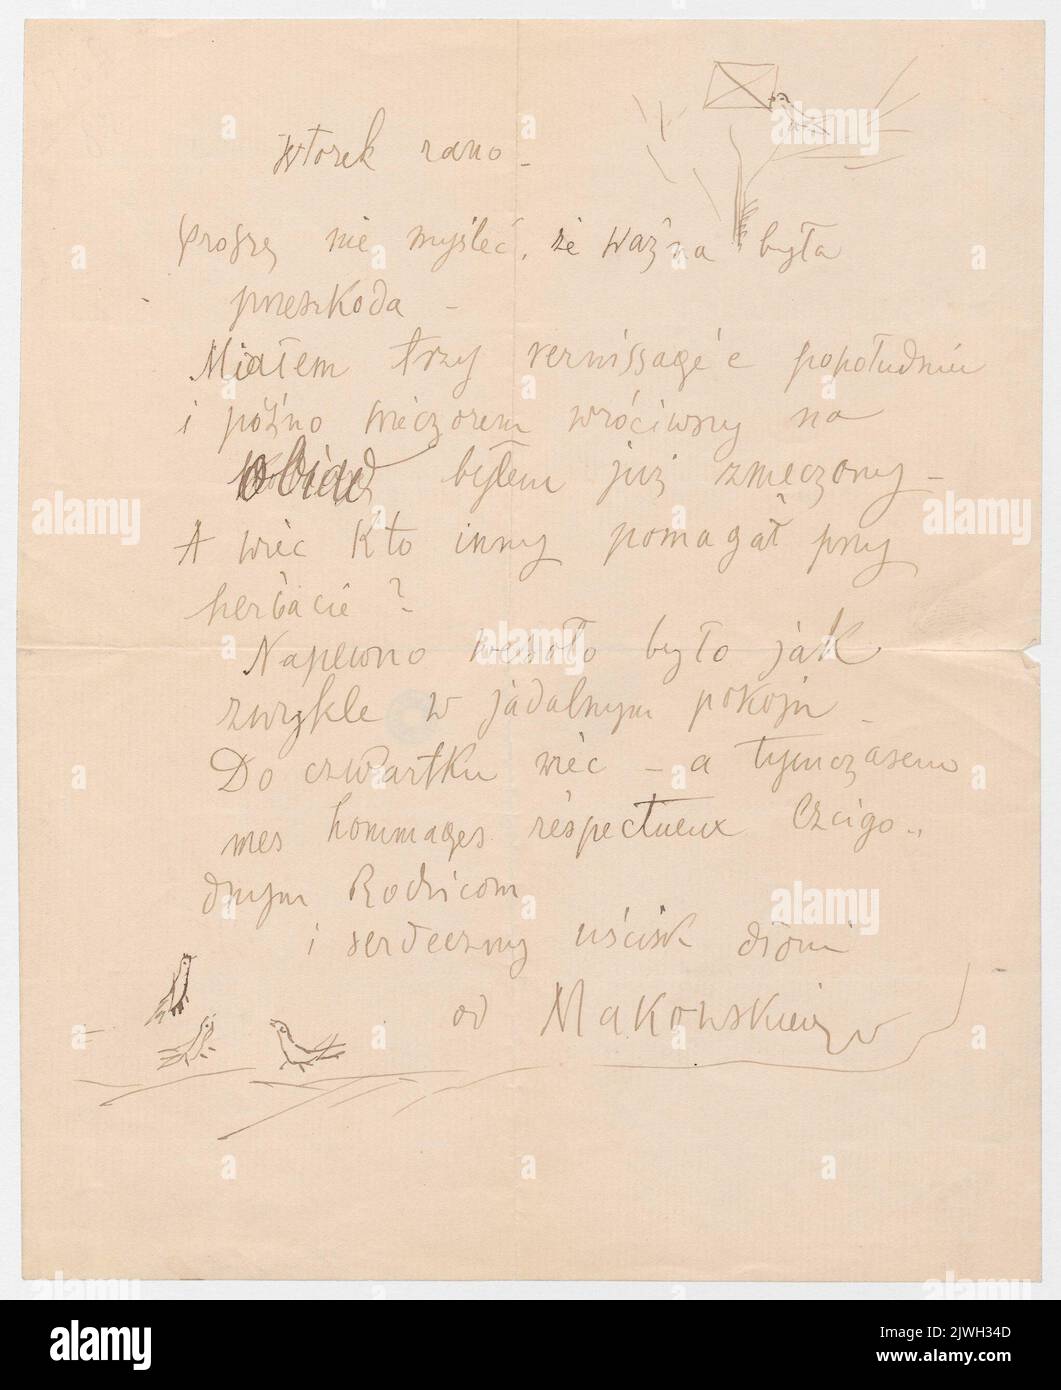 Wtorek rano –
Proszę nie myśleć, że ważna była
przeszkoda –
Miałem trzy vernissage'e popołudniu
i późno wieczorem wróciwszy na
obiad byłem już zmęczony –
A więc kto inny pomagał przy
herbacie?
Napewno wesoło było jak
zwykle w jadalnym pokoju –
Do czwartku więc – a tymczasem
mes hommages respectueux Czcigo-
dnym Rodzicom
i serdeczny uścisk dłoni
od Makowskiego
alamy
Image ID: 2JWH34D
www.alamy.com